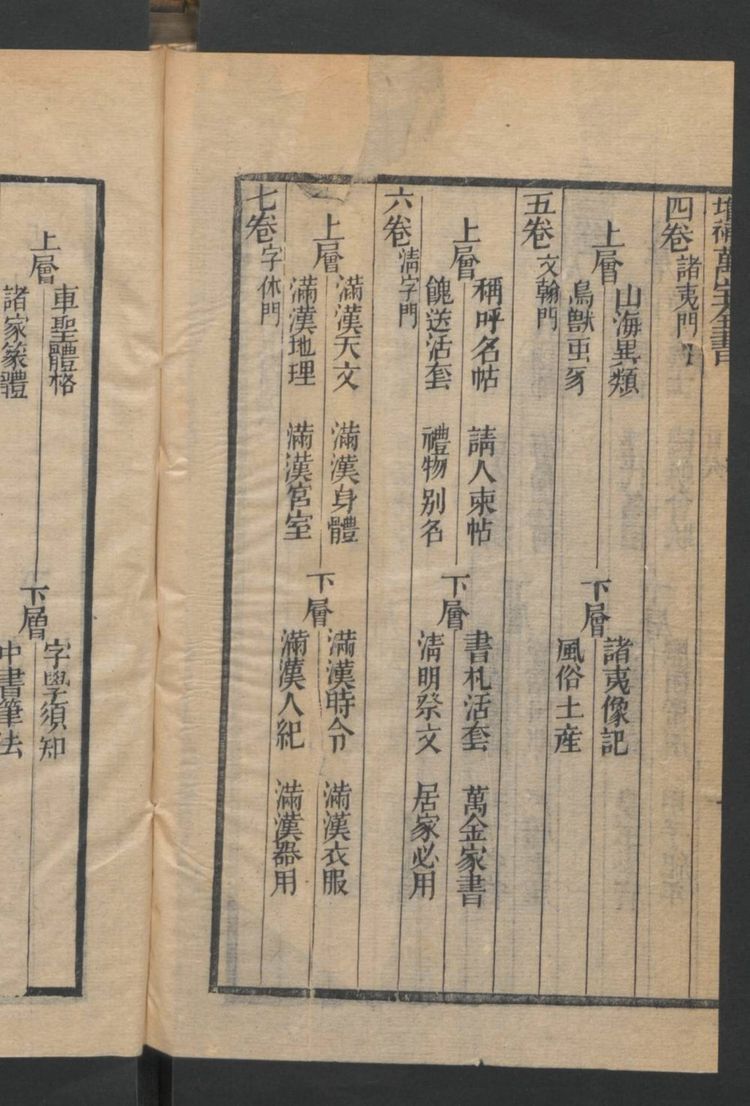 增補萬寶全書
四卷 諸夷門
上層
山海異類
鳥獸虫豸
下層
諸夷像記
風俗土産
五卷 文翰門
上層
稱呼名帖 請人柬帖
餽送活套 禮物别名
下層
書札活套 萬金家書
清明祭文 居家必用
六卷 清字門
上層
滿漢天文 滿漢身體
滿漢地理 滿漢宫室
下層
滿漢時令 滿漢衣服
滿漢人紀 滿漢器用
七卷 字休門
上層
車聖體格
諸家篆體
下層
字學須知
中書筆法